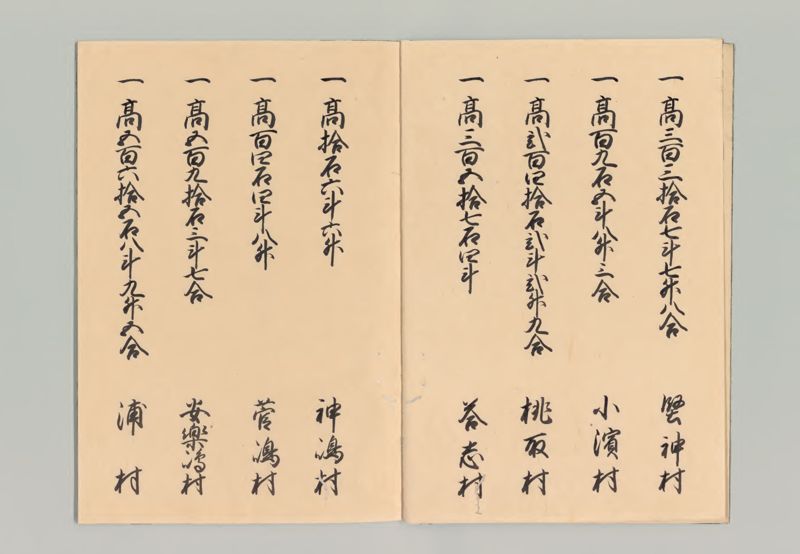 一高三百三拾石七斗七升八合 堅神村
一高百九石五斗八升三合 小濱村
一高弐百四拾石弐斗弐升九合 桃取村
一高三百五拾七石四斗 答志村
一高拾石六斗六升 神嶋村
一高百四石四斗八升 菅嶋村
一高五百九拾石三斗七合 安樂嶋村
一高五百六拾五石八斗九升五合 浦村